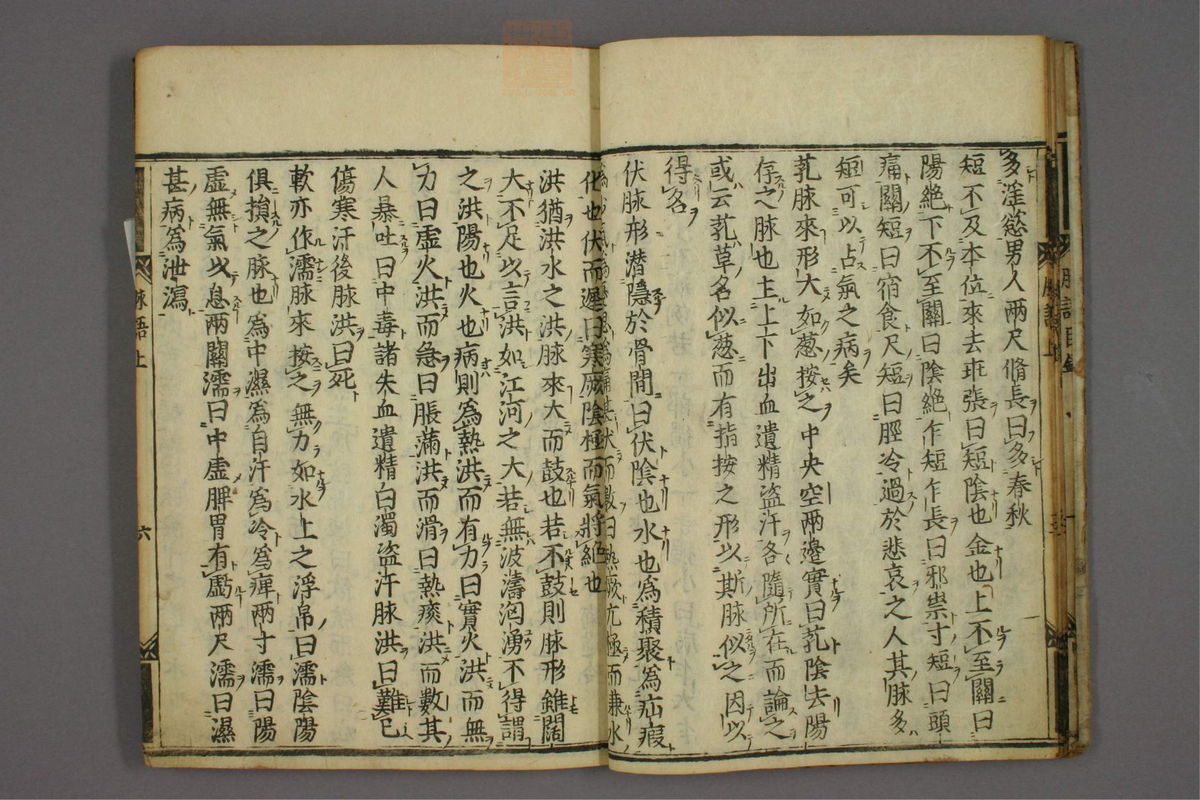 多淫慾男人兩尺脩長曰多春秋
短不及本位來去乖張曰短陰也金也上不至關曰
陽絶下不至關曰陰絶乍短乍長曰邪祟寸短曰頭
痛關短曰宿食尺短曰脛冷過於悲哀之人其脉多
短可以占氣之病矣
芤脉來形大如葱按之中央空兩邊實曰芤陰去陽
存之脉也主上下出血遺精盜汗各隨所在而論之
或云芤草名似葱而有指按之形以斯脉似之因以
得名
伏脉形潜隱於骨間曰伏陰也水也為積聚為疝瘕
伏而數曰熱厥亢極而兼水
化也伏而遲曰寒厥陰極而氣將絕也
洪猶洪水之洪脉來大而鼓也若不鼓則脉形雖闊
大不足以言洪如江河之大若無波濤洶湧不得謂
之洪陽也火也病則為熱洪而有力曰實火洪而無
力曰虛火洪而急曰脹滿洪而滑曰熱痰洪而數其
人暴吐曰中毒諸失血遺精白濁盜汗脉洪曰難已
傷寒汗後脉洪曰死
軟亦作濡脉來按之無力如水上之浮帛曰濡陰陽
俱損之脉也為中濕為自汗為冷為痺兩寸濡曰陽
虛無氣以息兩關濡曰中虛脾胃有虧兩尺濡曰濕
甚病為泄瀉
脉語上
六